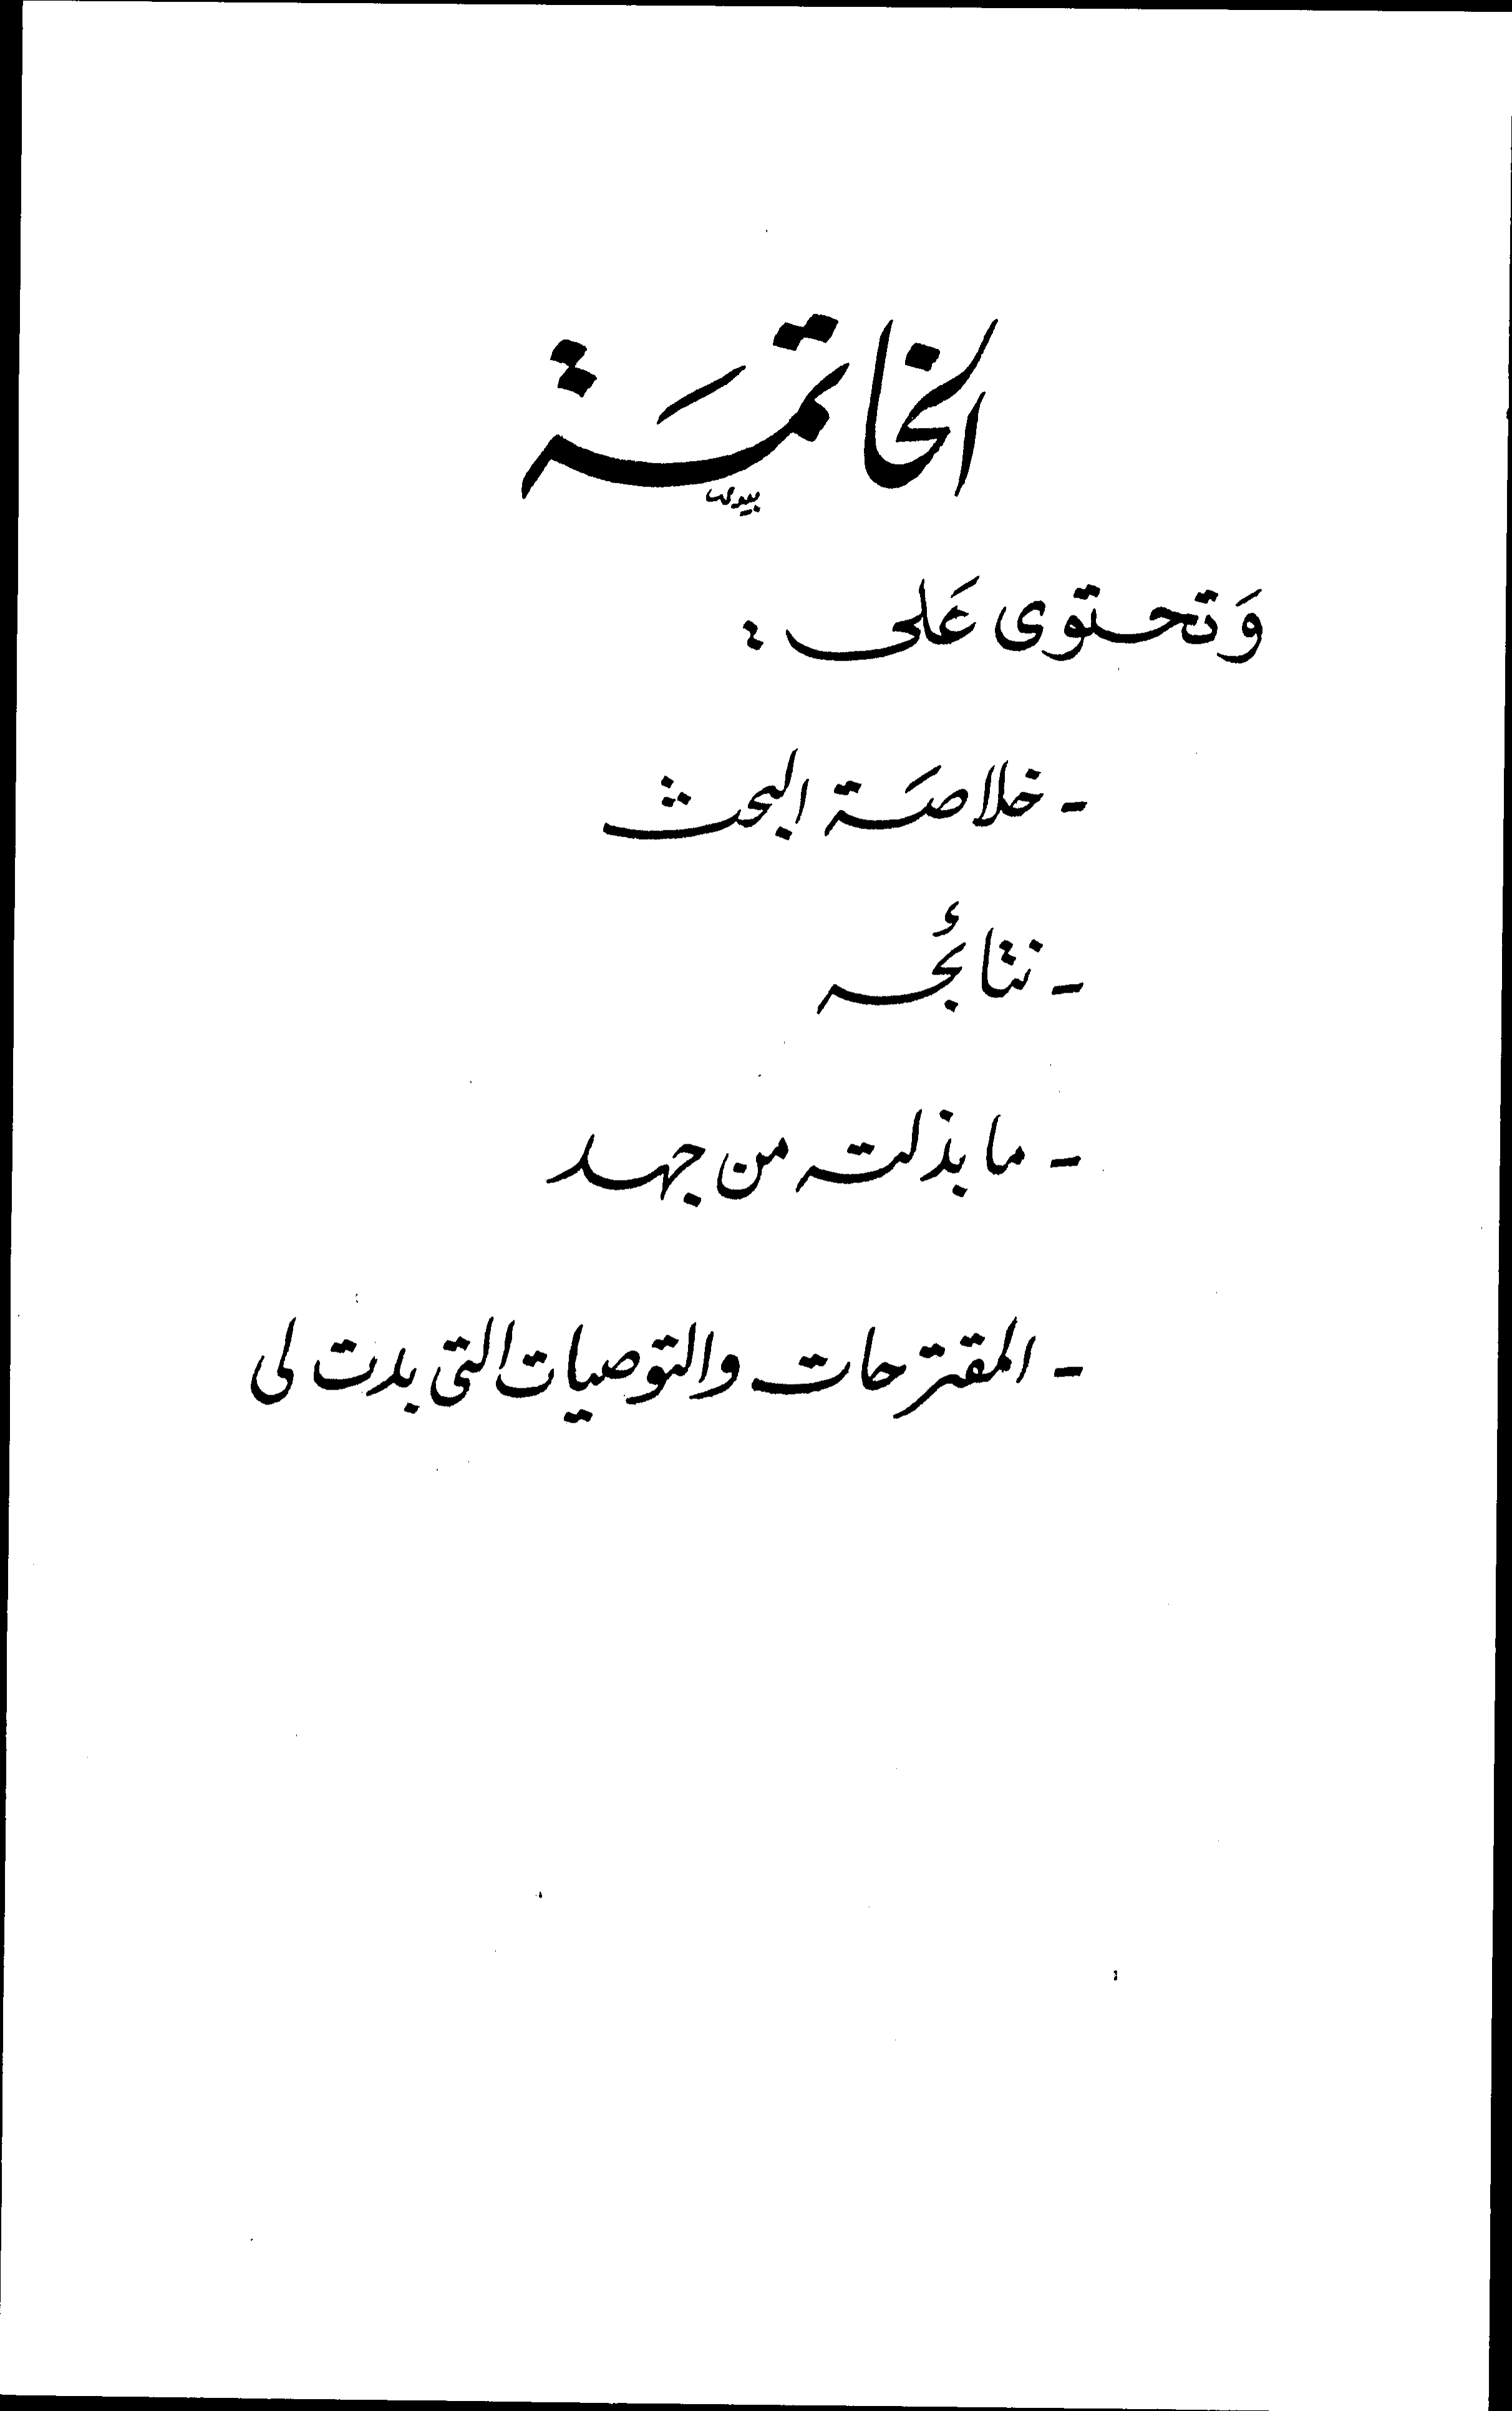 الخاتمَة
وَتحتوى عَلى :
- خلاصَة البحث
- نتائجه
- ما بذلته من جهد
- المقترحات والتوصيات التى بدت لى